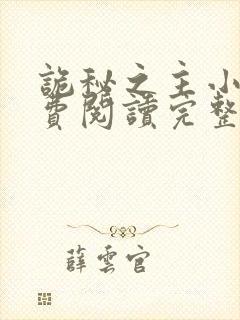 詭秘之主小
費閱讀完整
薛雲官